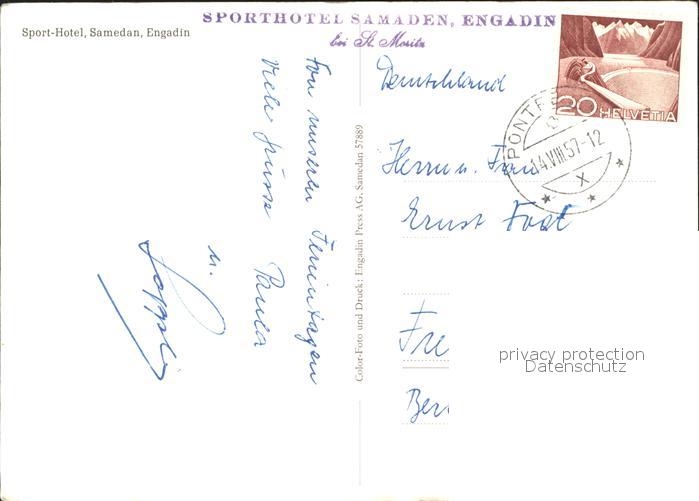 SPORTHOTEL SAMADEN, ENGADIN
bei St. Moritz
Sport-Hotel, Samedan, Engadin
Von unseren Ferientagen
viele Grüsse Paula
u.
Color-Foto und Druck: Engadin Press AG, Samedan 57889
20 HELVETIA
PONTRE
14.VIII.57-12
X
Deutschland
Herrn u. Frau
Ernst
Fre
Ber
privacy protection
Datenschutz